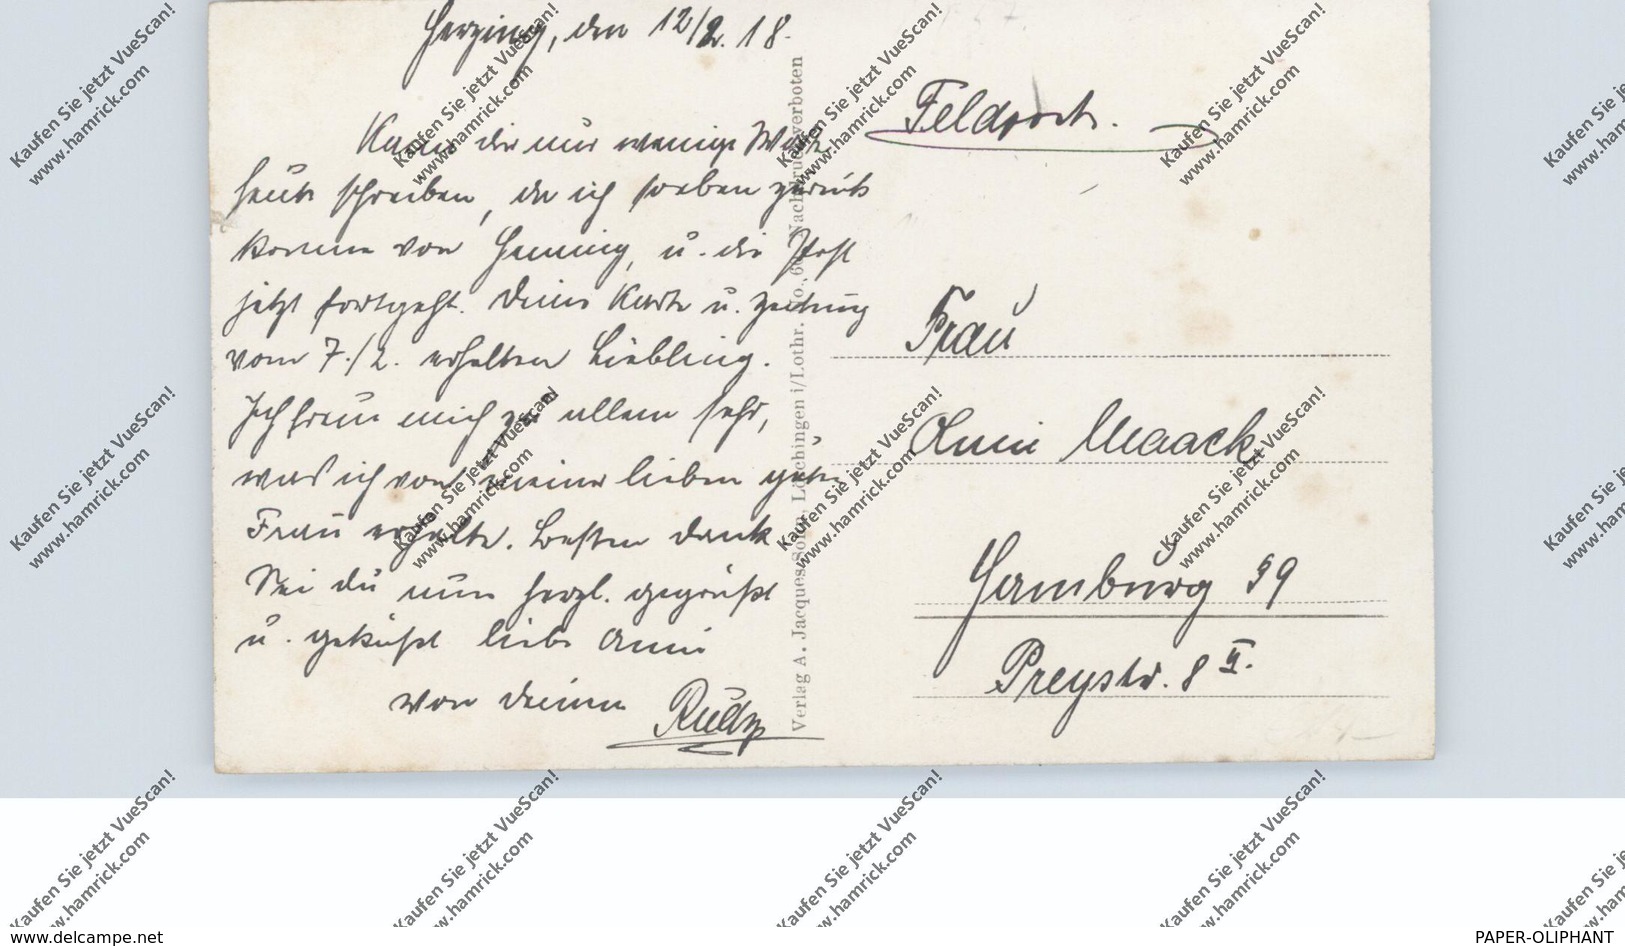 Herzing, den 12/2. 18.
Kann dir nur wenige Worte
heute schreiben, da ich soeben zurück
komme von Heming, u. die Post
jetzt fortgeht. Deine Karte u. Zeitung
vom 7./2. erhalten Liebling.
Ich freue mich zu allem sehr,
was ich von meiner lieben guten
Frau erhalte. Besten Dank
Sei du nun herzl. gegrüßt
u. geküßt liebe Anni
von deinem Rudy
Verlag A. Jacques Sohn, Lörchingen i/Lothr. No. Nachdruck verboten
Feldpost.
Frau
Anni Maack
Hamburg 39
Preystr. 8 II.
Kaufen Sie jetzt VueScan!
www.hamrick.com
www.delcampe.net
PAPER-OLIPHANT